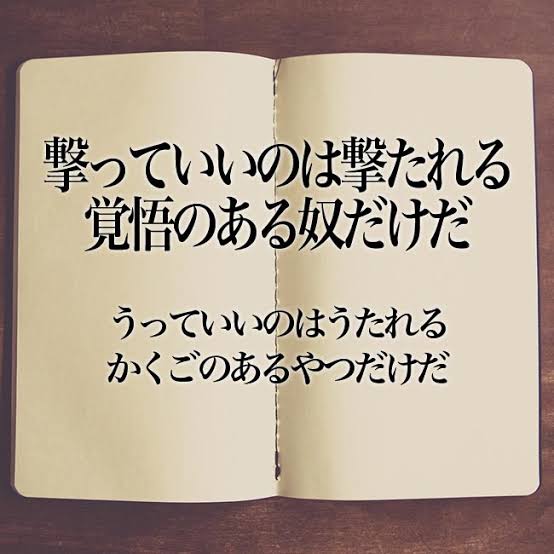 撃っていいのは撃たれる
覚悟のある奴だけだ
うっていいのはうたれる
かくごのあるやつだけだ